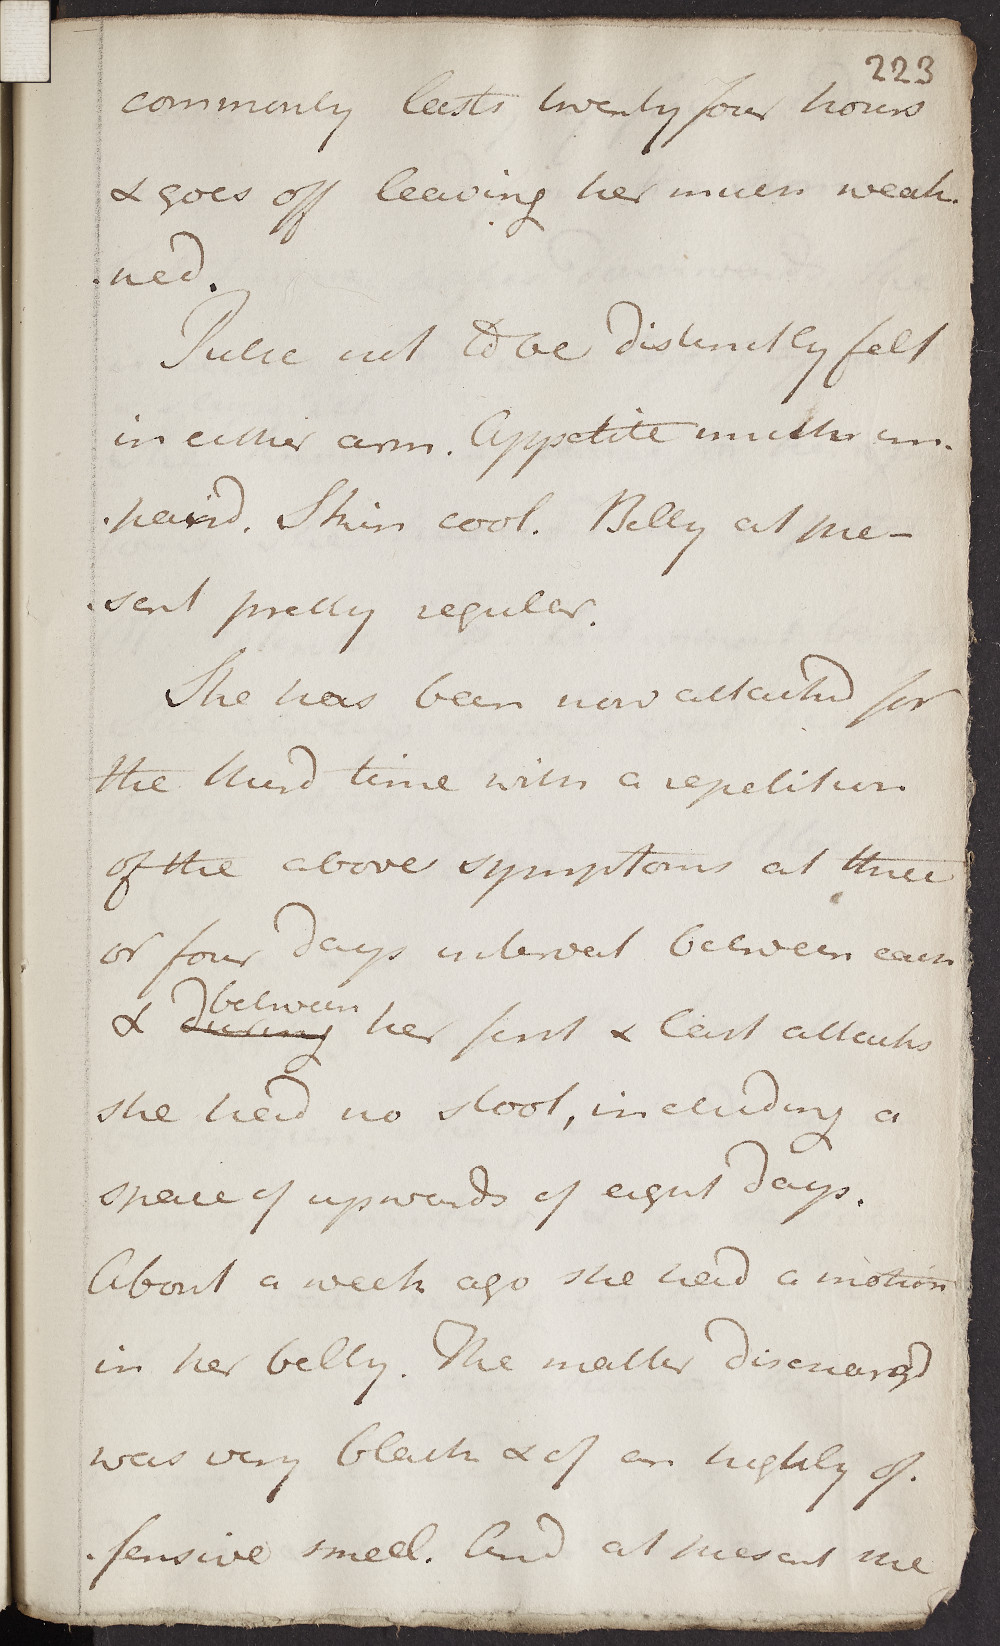 223
commonly lasts twenty four hours
& goes off leaving her much weak-
-ned.
Pulse not to be distinctly felt
in either arm. Appetite much im-
-paird. Skin cool. Belly at pre-
-sent pretty regular.
She has been now attackd for
the third time with a repetition
of the above symptoms at three
or four days interval between each
between
& during her first & last attacks
she had no stool, including a
space of upwards of eight days.
About a week ago she had a motion
in her belly. The matter dischargd
was very black & of an highly of-
-fensive smell. And at present she